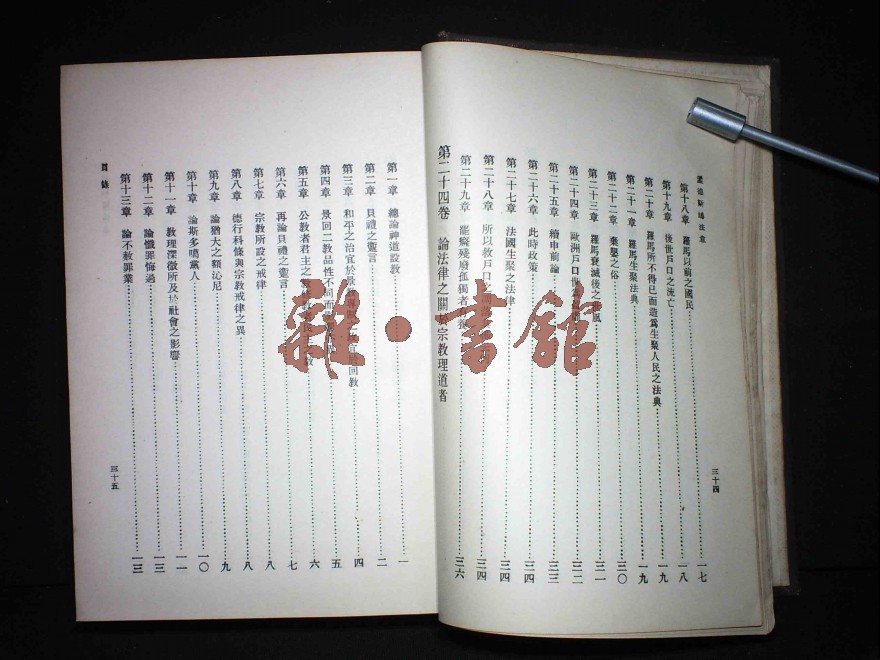 孟德斯鳩法意
第十八章 羅馬以前之國民 一七
第十九章 後世戶口之流亡 一八
第二十章 羅馬所不得已而造為生聚人民之法典 一九
第二十一章 羅馬生聚法典 一九
第二十二章 棄嬰之俗 二〇
第二十三章 羅馬衰滅後之風 二一
第二十四章 歐洲戶口 二二
第二十五章 續申前論 二三
第二十六章 此時政策 二四
第二十七章 法國生聚之法律 二四
第二十八章 所以救戶口之 二四
第二十九章 罷癃殘廢孤獨者 二六
第二十四卷 論法律之關於宗教理道者
三十四
第一章 總論神道設教 一
第二章 貝禮之讆言 二
第三章 和平之治宜於景教 回教 四
第四章 景回二教品性不同 五
第五章 公教者君主之 六
第六章 再論貝禮之讆言 七
第七章 宗教所設之戒律 八
第八章 德行科條與宗教戒律之異 八
第九章 論猶大之額沁尼 九
第十章 論斯多噶黨人 一〇
第十一章 教理深微所及於社會之影響 一一
第十二章 論懺罪悔過 一三
第十三章 論不赦罪業 一三
目錄
三十五
雜·書館